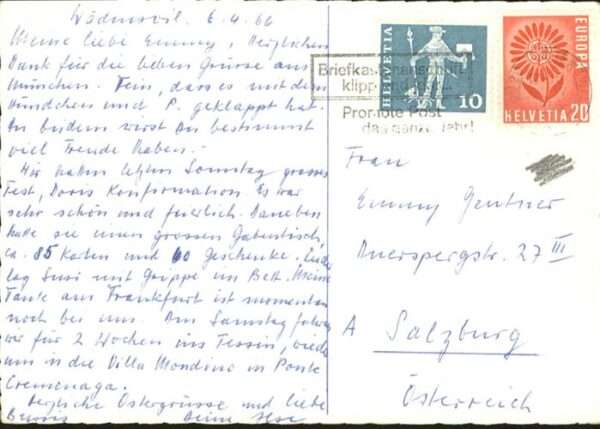 Wädenswil. 6.4.66
Meine liebe Emmy, Herzlichen
Dank für die lieben Grüsse aus
München. Fein, dass es mit dem
Hündchen und P. geklappt hat.
An beidem wirst Du bestimmt
viel Freude haben.
Wir hatten letzten Sonntag grosses
Fest, Doris Konfirmation. Es war
sehr schön und feierlich. Daneben
hatte sie einen grossen Gabentisch,
ca. 85 Karten und 60 Geschenke. Leider
lag Susi mit Grippe im Bett. Meine
Tante aus Frankfurt ist momentan
noch bei uns. Am Samstag fahren
wir für 2 Wochen ins Tessin, wieder
um in die Villa Mondino in Ponte
Cremenaga.
Herzliche Ostergrüsse und liebe
Deine
HELVETIA
10
EUROPA
HELVETIA 20
Briefkasten
klipp und
Promote Post
das ganze Jahr!
Frau
Emmy Gentner
Auerspergstr. 27 III
A Salzburg
Österreich